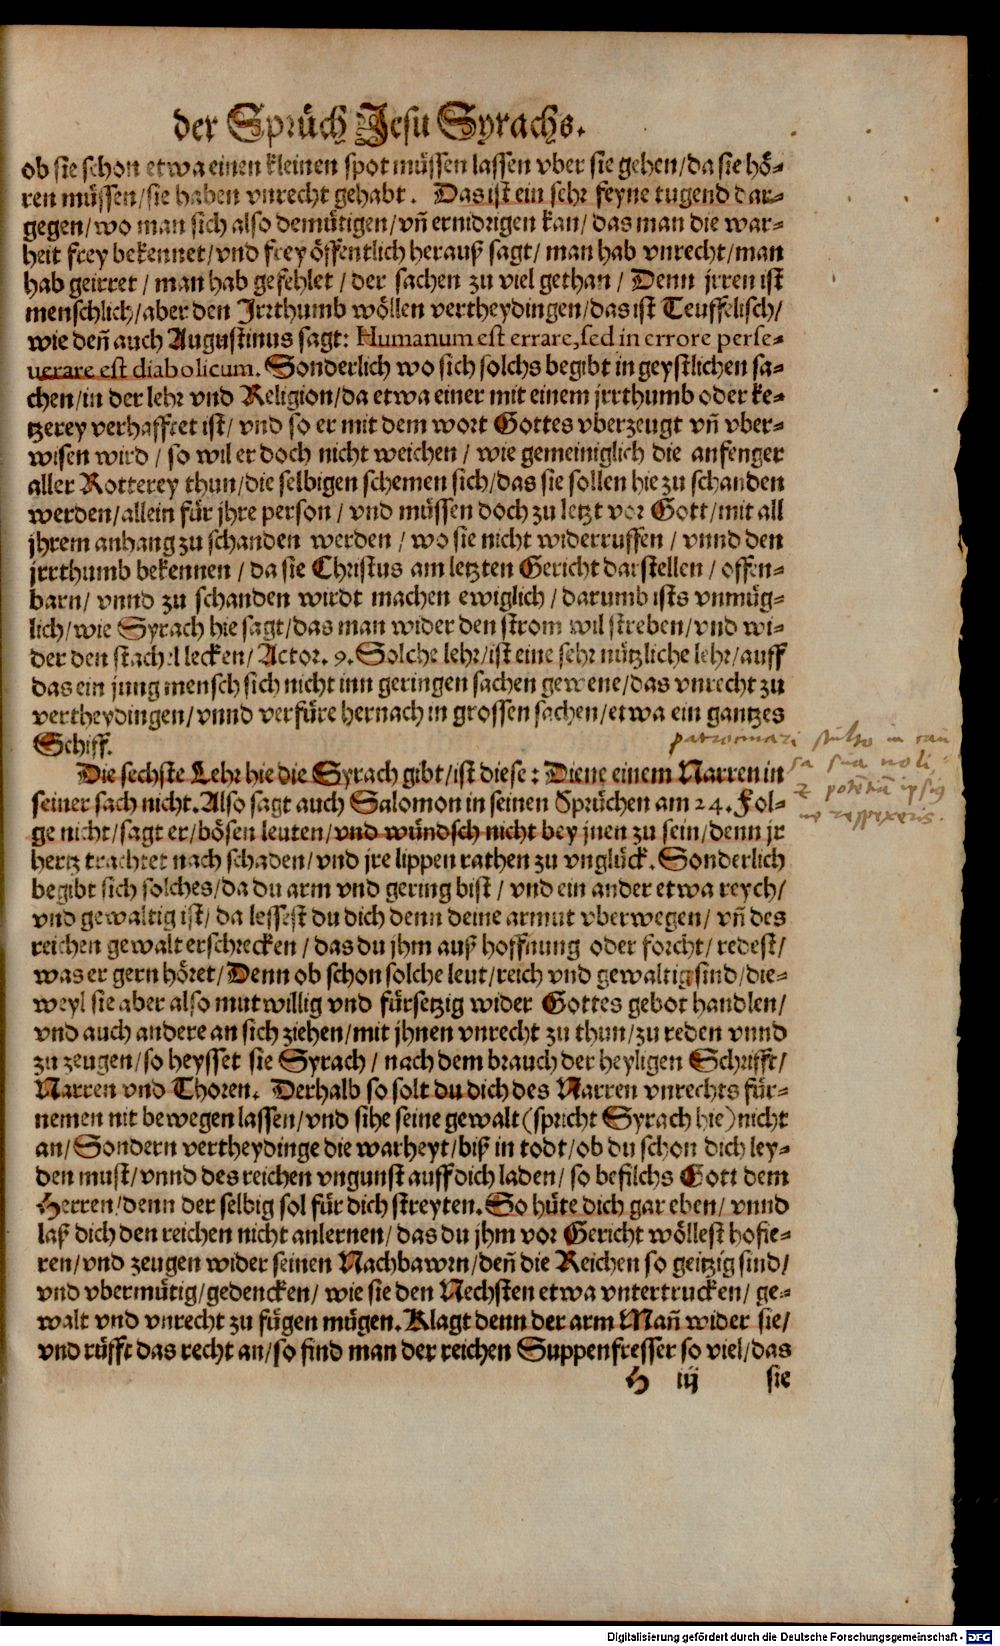 der Sprüch Jesu Syrachs.
ob sie schon etwa einen kleinen spot müssen lassen vber sie gehen/da sie hö-
ren müssen/sie haben vnrecht gehabt. Das ist ein sehr feyne tugend dar-
gegen/wo man sich also demütigen/vn̄ ernidrigen kan/das man die war-
heit frey bekennet/vnd frey öffentlich herauß sagt/man hab vnrecht/man
hab geirret/man hab gefehlet/der sachen zu viel gethan/Denn jrren ist
menschlich/aber den Jrrthumb wöllen vertheydingen/das ist Teuffelisch/
wie den̄ auch Augustinus sagt: Humanum est errare, sed in errore perse-
uerare est diabolicum. Sonderlich wo sich solchs begibt in geystlichen sa-
chen/in der lehr vnd Religion/da etwa einer mit einem jrrthumb oder ke-
tzerey verhafftet ist/vnd so er mit dem wort Gottes vberzeugt vn̄ vber-
wisen wird/so wil er doch nicht weichen/wie gemeiniglich die anfenger
aller Rotterey thun/die selbigen schemen sich/das sie sollen hie zu schanden
werden/allein für jhre person/vnd müssen doch zu letzt vor Gott/mit all
jhrem anhang zu schanden werden/wo sie nicht widerruffen/vnnd den
jrrthumb bekennen/da sie Christus am letzten Gericht darstellen/offen-
barn/vnnd zu schanden wirdt machen ewiglich/darumb ists vnmüg-
lich/wie Syrach hie sagt/das man wider den strom wil streben/vnd wi-
der den stachel lecken/Actor. 9. Solche lehr/ist eine sehr nützliche lehr/auff
das ein jung mensch sich nicht inn geringen sachen gewene/das vnrecht zu
vertheydingen/vnnd verfüre hernach in grossen sachen/etwa ein gantzes
Schiff.
patrocinari stulto in cau
sa sua noli,
& potentiā ipsius
ne respexeris.
Die sechste Lehr hie die Syrach gibt/ist diese: Diene einem Narren in
seiner sach nicht. Also sagt auch Salomon in seinen Sprüchen am 24. Fol-
ge nicht/sagt er/bösen leuten/vnd wündsch nicht bey jnen zu sein/denn jr
hertz trachtet nach schaden/vnd jre lippen rathen zu vnglück. Sonderlich
begibt sich solches/da du arm vnd gering bist/vnd ein ander etwa reych/
vnd gewaltig ist/da lessest du dich denn deine armut vberwegen/vn̄ des
reichen gewalt erschrecken/das du jhm auß hoffnung oder forcht/redest/
was er gern höret/Denn ob schon solche leut/reich vnd gewaltig sind/die-
weyl sie aber also mutwillig vnd fürsetzig wider Gottes gebot handlen/
vnd auch andere an sich ziehen/mit jhnen vnrecht zu thun/zu reden vnnd
zu zeugen/so heysset sie Syrach/nach dem brauch der heyligen Schrifft/
Narren vnd Thoren. Derhalb so solt du dich des Narren vnrechts für-
nemen nit bewegen lassen/vnd sihe seine gewalt (spricht Syrach hie) nicht
an/Sondern vertheydinge die warheyt/biß in todt/ob du schon dich ley-
den must/vnnd des reichen vngunst auff dich laden/so befilchs Gott dem
Herren/denn der selbig sol für dich streyten. So hüte dich gar eben/vnnd
laß dich den reichen nicht anlernen/das du jhm vor Gericht wöllest hofie-
ren/vnd zeugen wider seinen Nachbawrn/den̄ die Reichen so geitzig sind/
vnd vbermütig/gedencken/wie sie den Nechsten etwa vntertrucken/ge-
walt vnd vnrecht zu fügen mügen. Klagt denn der arm Man̄ wider sie/
vnd rüfft das recht an/so find man der reichen Suppenfresser so viel/das
H iij sie
Digitalisierung gefördert durch die Deutsche Forschungsgemeinschaft - DFG